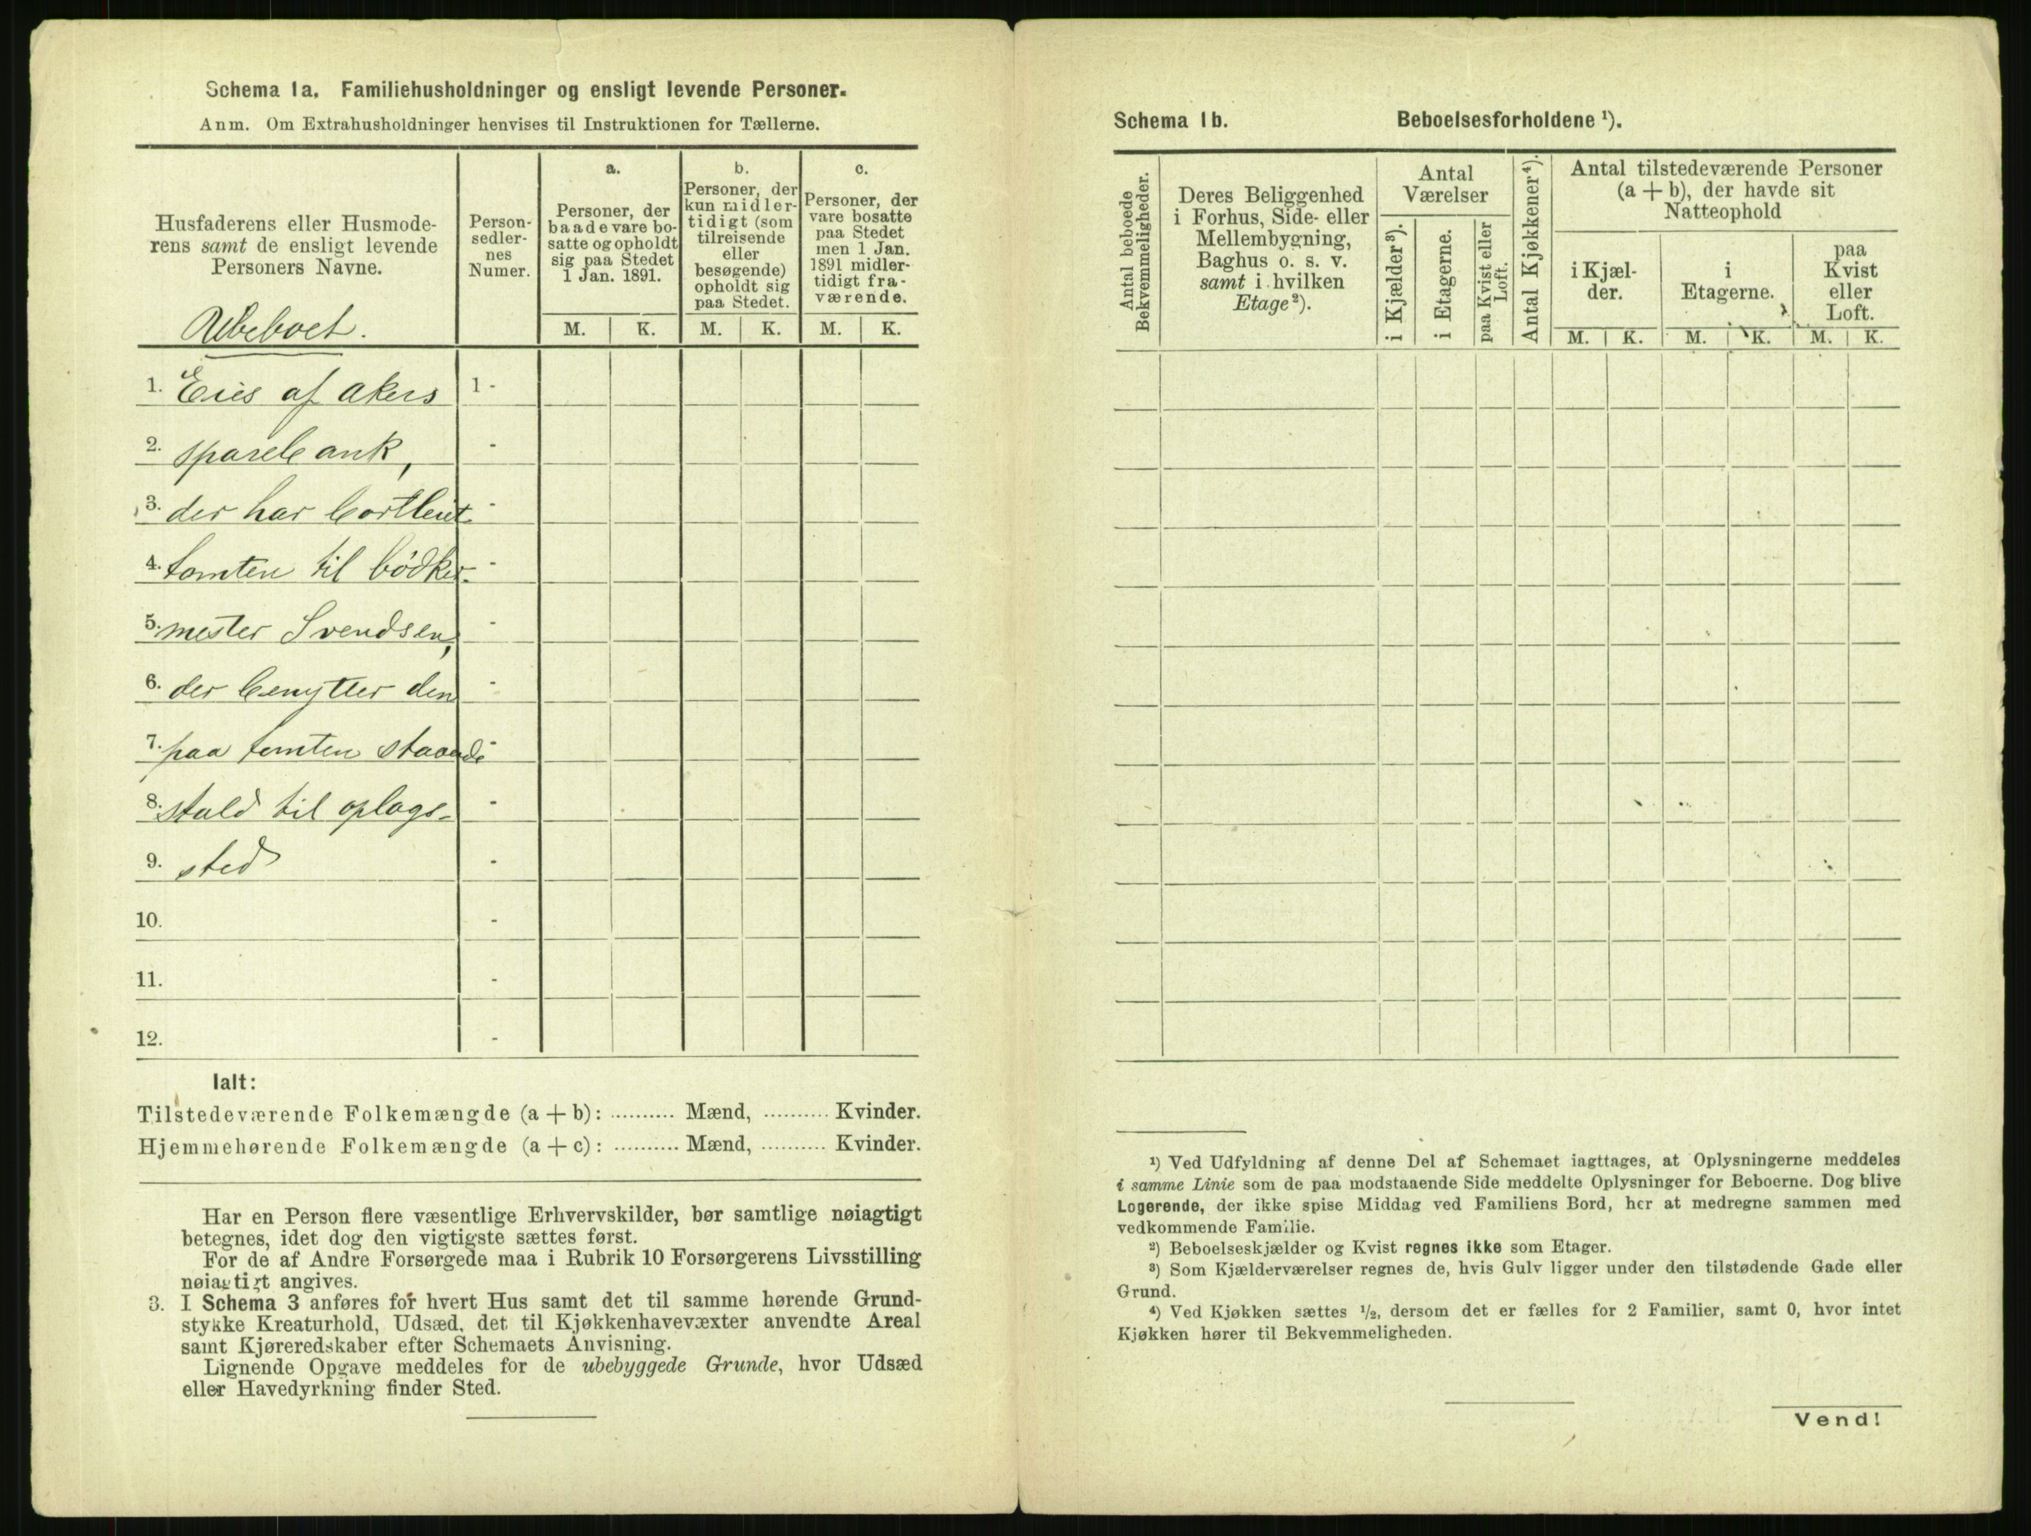 Schema 1a. Familiehusholdninger og ensligt levende Personer.
Anm. Om Extrahusholdninger henvises til Instruktionen for Tællerne.
Husfaderens eller Husmode-
rens samt de ensligt levende
Personers Navne.
Ubeboet.
Person-
sedler-
nes
Numer.
a.
Personer, der
baade vare bo-
satte og opholdt
sig paa Stedet
1 Jan. 1891.
b.
Personer, der
kun midler-
tidigt (som
tilreisende
eller
besøgende)
opholdt sig
paa Stedet.
c.
Personer, der
vare bosatte
paa Stedet
men 1 Jan.
1891 midler-
tidigt fra-
værende.
M. K. M. K. M. K.
1. Eies af Akers 1 -
2. sparebank, -
3. der har bortleiet -
4. tomten til bödker- -
5. mester Svendsen, -
6. der benytter den -
7. paa tomten staaende -
8. stald til oplags- -
9. sted -
10. -
11. -
12. -
Ialt:
Tilstedeværende Folkemængde (a + b): .......... Mænd, .......... Kvinder.
Hjemmehørende Folkemængde (a + c): .......... Mænd, .......... Kvinder.
Har en Person flere væsentlige Erhvervskilder, bør samtlige nøiagtigt
betegnes, idet dog den vigtigste sættes først.
For de af Andre Forsørgede maa i Rubrik 10 Forsørgerens Livsstilling
nøiagtigt angives.
3. I Schema 3 anføres for hvert Hus samt det til samme hørende Grund-
stykke Kreaturhold, Udsæd, det til Kjøkkenhavevæxter anvendte Areal
samt Kjøreredskaber efter Schemaets Anvisning.
Lignende Opgave meddeles for de ubebyggede Grunde, hvor Udsæd
eller Havedyrkning finder Sted.
Schema 1b. Beboelsesforholdene ¹).
Antal beboede
Bekvemmeligheder.
Deres Beliggenhed
i Forhus, Side- eller
Mellembygning,
Baghus o. s. v.
samt i hvilken
Etage²).
Antal
Værelser
i Kjælder³).
i Etagerne.
paa Kvist eller
Loft.
Antal Kjøkkener⁴).
Antal tilstedeværende Personer
(a + b), der havde sit
Natteophold
i Kjæl-
der.
i
Etagerne.
paa
Kvist
eller
Loft.
M. K. M. K. M. K.
¹) Ved Udfyldning af denne Del af Schemaet iagttages, at Oplysningerne meddeles
i samme Linie som de paa modstaaende Side meddelte Oplysninger for Beboerne. Dog blive
Logerende, der ikke spise Middag ved Familiens Bord, her at medregne sammen med
vedkommende Familie.
²) Beboelseskjælder og Kvist regnes ikke som Etager.
³) Som Kjælderværelser regnes de, hvis Gulv ligger under den tilstødende Gade eller
Grund.
⁴) Ved Kjøkken sættes ½, dersom det er fælles for 2 Familier, samt 0, hvor intet
Kjøkken hører til Bekvemmeligheden.
Vend!